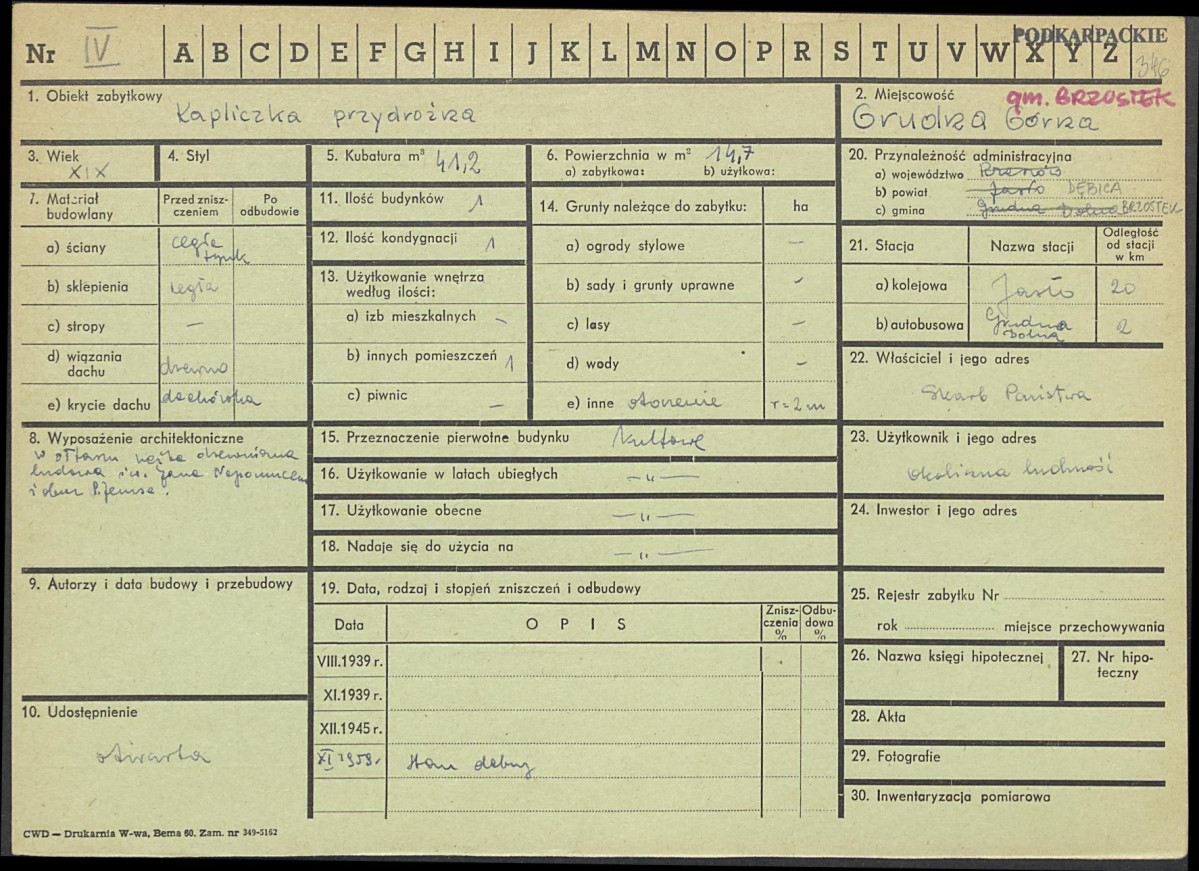 PODKARPACKIE
Nr IV A B C D E F G H I J K L M N O P R S T U V W X Y Z
346
1. Obiekt zabytkowy
Kapliczka przydrożna
2. Miejscowość gm. BRZOSTEK
Grudna Górna
3. Wiek
XIX
4. Styl
5. Kubatura m³ 41,2
6. Powierzchnia w m² 14,7
a) zabytkowa: b) użytkowa:
20. Przynależność administracyjna
a) województwo Rzeszów
b) powiat Jasło DĘBICA
c) gmina Grudna Dolna BRZOSTEK
7. Materiał budowlany
Przed zniszczeniem
Po odbudowie
a) ściany cegła tynk
b) sklepienia cegła
c) stropy —
d) wiązania dachu drewno
e) krycie dachu dachówka
11. Ilość budynków 1
12. Ilość kondygnacji 1
13. Użytkowanie wnętrza według ilości:
a) izb mieszkalnych –
b) innych pomieszczeń 1
c) piwnic —
14. Grunty należące do zabytku: ha
a) ogrody stylowe —
b) sady i grunty uprawne –
c) lasy —
d) wody –
e) inne otoczenie r = 2 m
21. Stacja
Nazwa stacji
Odległość od stacji w km
a) kolejowa Jasło 20
b) autobusowa Grudna Dolna 2
22. Właściciel i jego adres
Skarb Państwa
8. Wyposażenie architektoniczne
w ołtarzu rzeźba drewniana
ludowa św. Jana Nepomucena
i obraz P. Jezusa.
15. Przeznaczenie pierwotne budynku kultowe
16. Użytkowanie w latach ubiegłych —"—
17. Użytkowanie obecne —"—
18. Nadaje się do użycia na —"—
23. Użytkownik i jego adres
okoliczna ludność
24. Inwestor i jego adres
9. Autorzy i data budowy i przebudowy
19. Data, rodzaj i stopień zniszczeń i odbudowy
Data
OPIS
Zniszczenia %
Odbudowa %
VIII.1939 r.
XI.1939 r.
XII.1945 r.
XI 1959 r. stan dobry
25. Rejestr zabytku Nr
rok miejsce przechowywania
26. Nazwa księgi hipotecznej
27. Nr hipoteczny
28. Akta
29. Fotografie
30. Inwentaryzacja pomiarowa
10. Udostępnienie
otwarta
CWD — Drukarnia W-wa, Bema 60. Zam. nr 349-5162